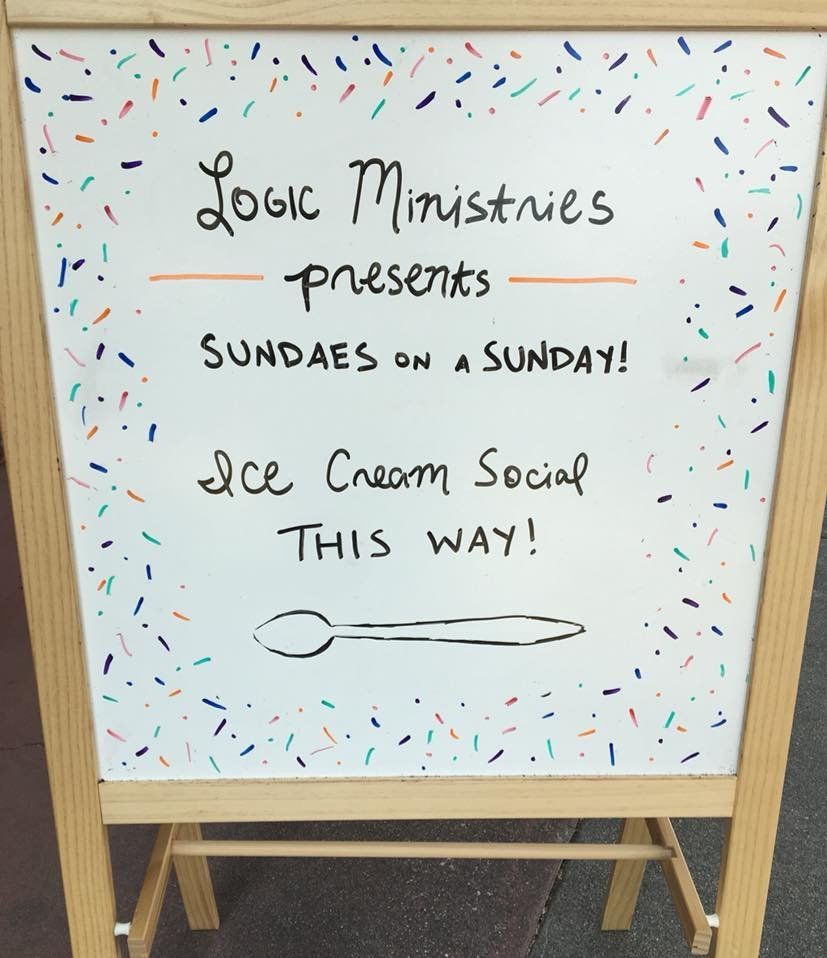 Logic Ministries
presents
SUNDAES ON A SUNDAY!
Ice Cream Social
THIS WAY!